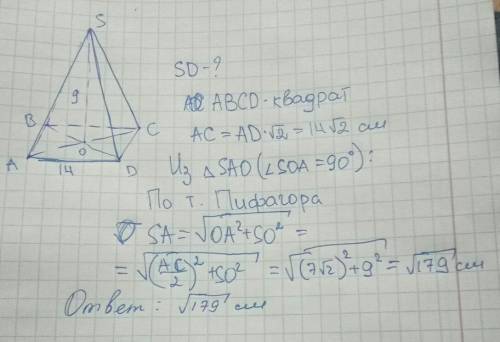 S
9
B
C
A
O
D
14
SD-?
ABCD-квадрат
AC = AD·√2 = 14√2 см
Из △SAO (∠SOA = 90°):
По т. Пифагора
SA = √(OA² + SO²) =
= √((AC/2)² + SO²) = √((7√2)² + 9²) = √179 см
Ответ: √179 см